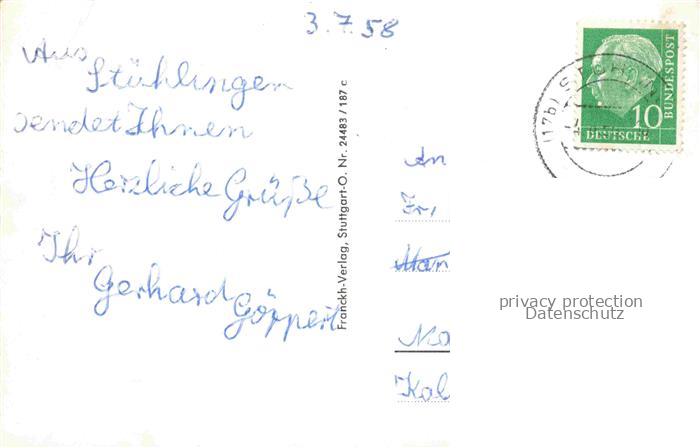 3.7.58
Aus
Stühlingen
sendet Ihnen
Herzliche Grüße
Ihr
Gerhard
Göppert
Franckh-Verlag, Stuttgart-O. Nr. 24483 / 187 c
(17b)
10
DEUTSCHE
BUNDESPOST
An
privacy protection
Datenschutz